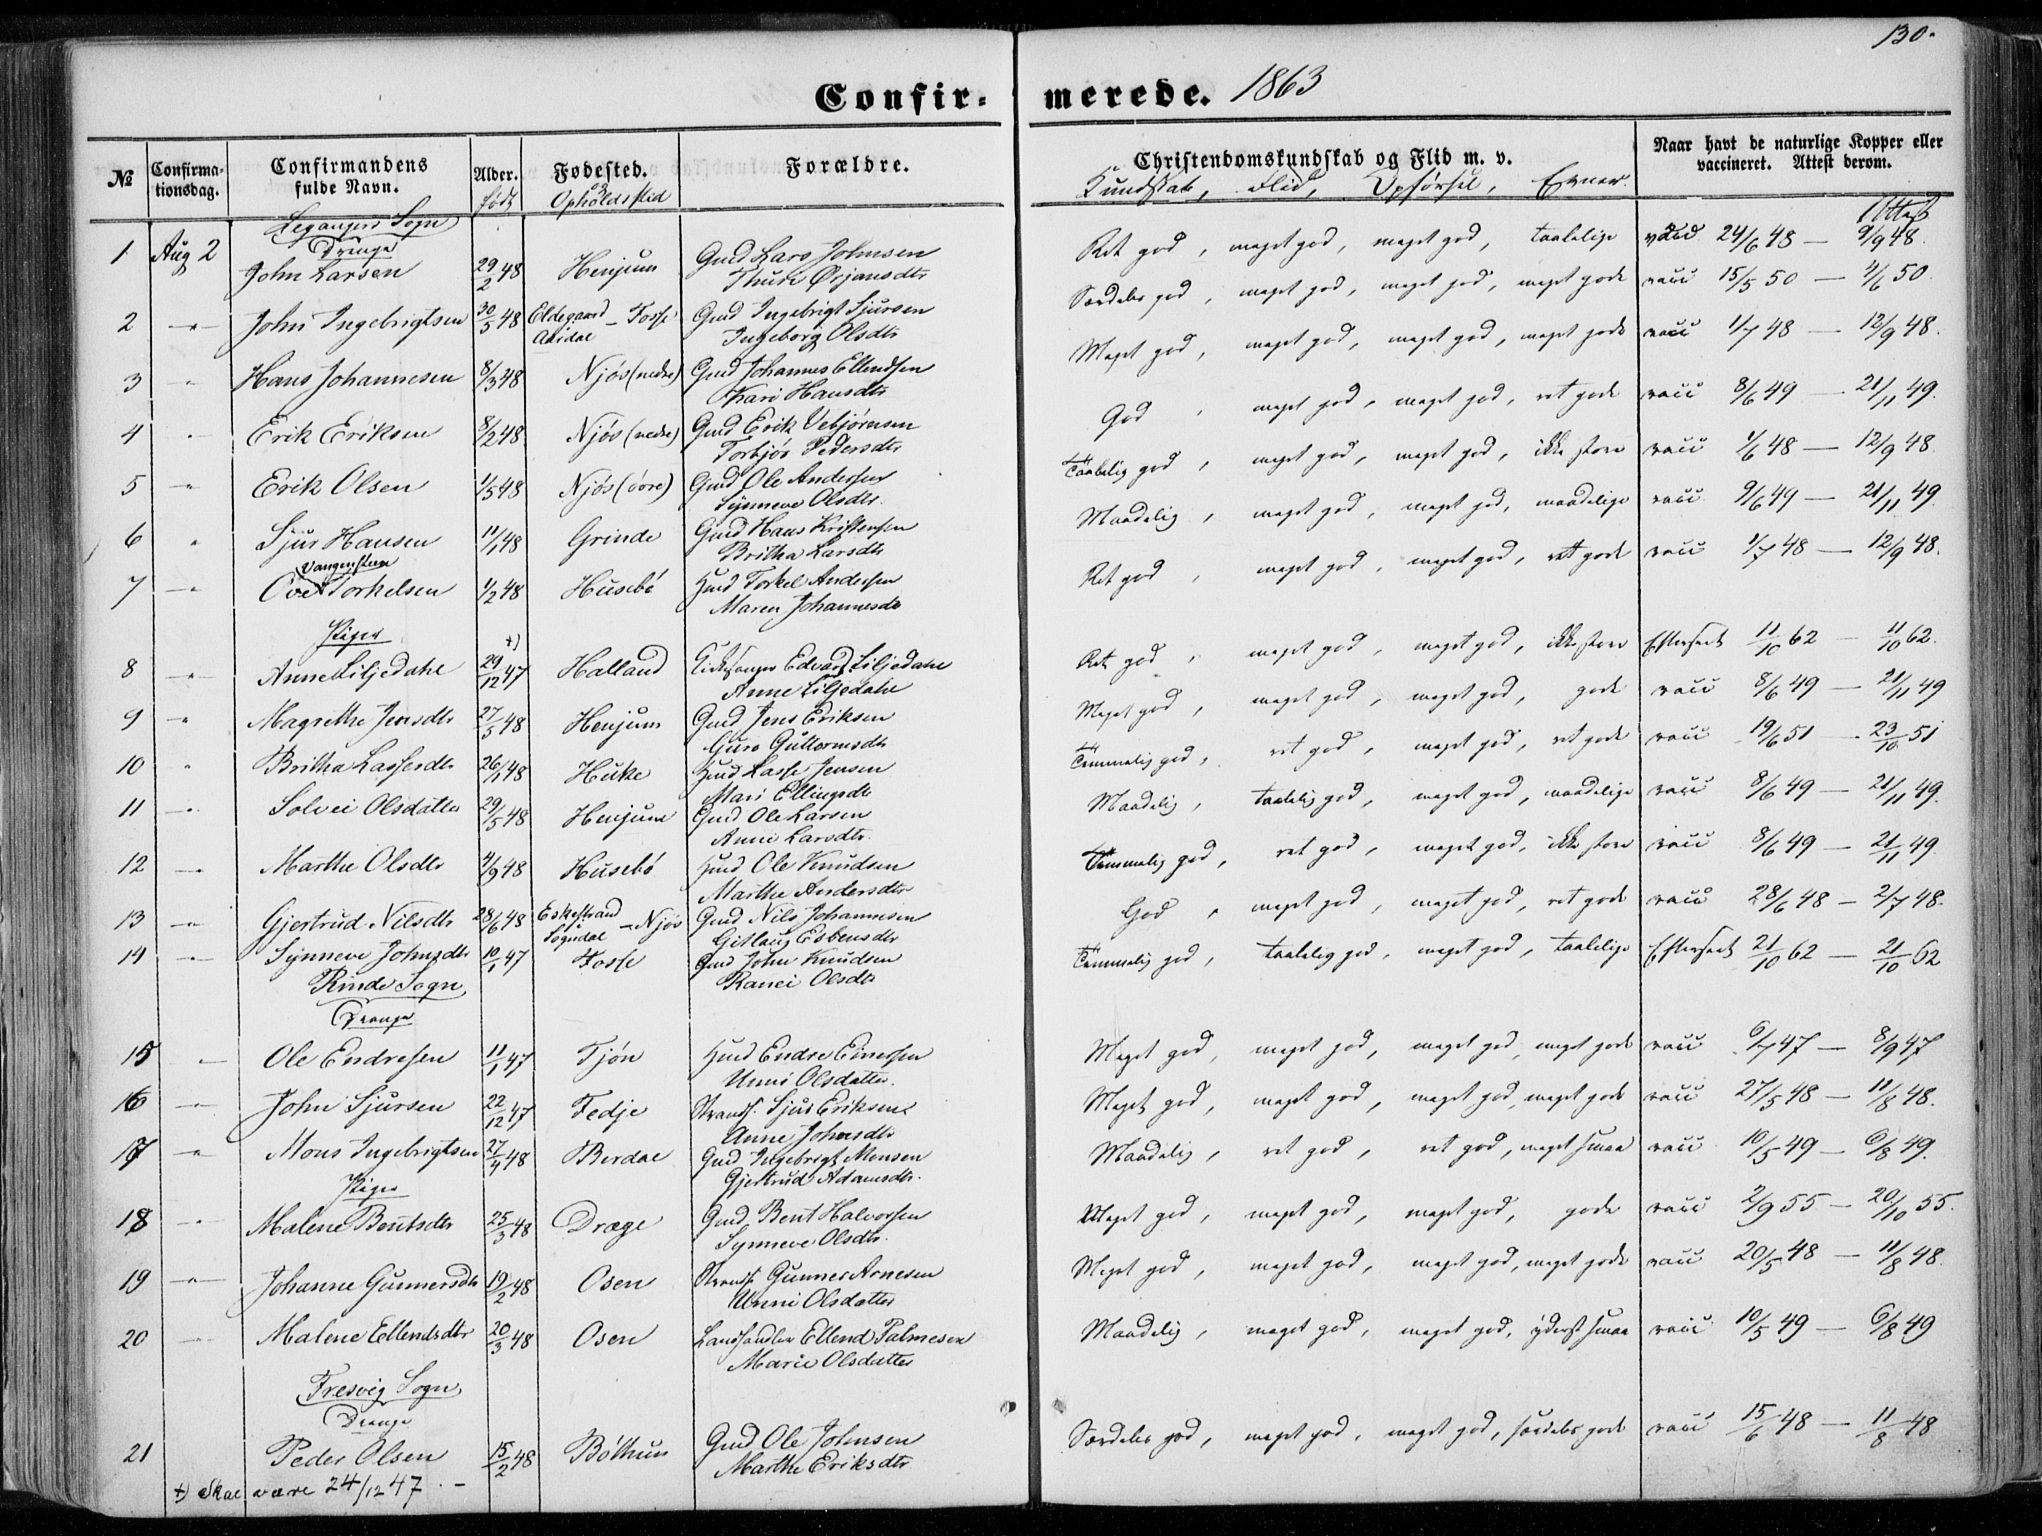 130.
Confir- merede. 1863
№ Confirma-tionsdag. Confirmandens fulde Navn. Alder. født Fødested. og Opholdssted Forældre. Christendomskundskab og Flid m. v. Kundskab, Flid, Opførsel, Evner. Naar havt de naturlige Kopper eller vaccineret. Attest derom.
Leganger Sogn Attest
Drenge
1 Aug 2 John Larsen 29/2 48 Henjum Gmd Lars Johnsen Thure Ørjansdtr Ret god, meget god, meget god, taalelige vacc 24/6 48 — 9/9 48.
2 " John Ingebrigtsen 30/5 48 Eldegaard Aardal - Fosse Gmd Ingebrigt Sjursen Ingeborg Olsdtr Særdeles god, meget god, meget god, meget gode vacc 15/5 50 — 4/6 50.
3 " Hans Johannesen 8/3 48 Njøs (nedre) Gmd Johannes Ellendsen Kari Hansdtr Meget god, meget god, meget god, meget gode vacc 1/7 48 — 12/9 48.
4 " Erik Eriksen 8/2 48 Njøs (nedre) Gmd Erik Vebjørnsen Torbjør Pedersdtr God, meget god, meget god, ret gode vacc 8/6 49 — 21/11 49.
5 " Erik Olsen 1/5 48 Njøs (øvre) Gmd Ole Andersen Synneve Olsdtr. Taalelig god, meget god, meget god, ikke store vacc 1/6 48 — 12/9 48.
6 " Sjur Hansen 11/1 48 Grinde Gmd Hans Kristensen Britha Larsdtr Maadelig, meget god, meget god, maadelige vacc 9/6 49 — 21/11 49.
Vangensten
7 " Ove Torkelsen 1/2 48 Husebø Hmd Torkel Andersen Maren Johannesdr Ret god, meget god, meget god, ret gode vacc 1/7 48 — 12/9 48.
Piger +)
8 " Anne Liljedahl 29/12 47 Halland Kirkesanger Edvard Liljedahl Anne Liljedahl Ret god, meget god, meget god, ikke store Efterseet 11/10 62 — 11/10 62.
9 " Magrethe Jensdtr 27/5 48 Henjum Gmd Jens Eriksen Guro Guttormsdtr Meget god, meget god, meget god, gode vacc 8/6 49 — 21/11 49
10 " Britha Lassesdtr 26/1 48 Huke Hmd Lasse Jensen Mari Ellingsdtr Temmelig god, ret god, meget god, ret gode vacc 19/6 51 — 23/10 51
11 " Solvei Olsdatter 29/5 48 Henjum Gmd Ole Larsen Anne Larsdtr. Maadelig, taalelig god, meget god, maadelige vacc 8/6 49 — 21/11 49.
12 " Marthe Olsdtr 4/9 48 Husebø Hmd Ole Knudsen Marthe Andersdtr Temmelig god, ret god, meget god, ikke store vacc 8/6 49 — 21/11 49.
13 " Gjertrud Nilsdtr 28/6 48 Eskestrand Sogndal - Njøs Gmd Nils Johannesen Gitlaug Esbensdtr God, meget god, meget god, ret gode vacc 28/6 48 — 2/7 48.
14 " Synneve Johnsdtr 10/1 47 Fosse Gmd John Knudsen Ranei Olsdtr Temmelig god, taalelig god, meget god, taalelige Efterseet 21/10 62 — 21/10 62
Rinde Sogn
Drenge
15 " Ole Endresen 11/1 47 Tjøn Hmd Endre Einersen Unni Olsdatter. Meget god, meget god, meget god, meget gode vacc 6/7 47 — 8/9 47
16 " John Sjursen 22/12 47 Fedje Strands. Sjur Eriksen Anne Johnsdtr Meget god, meget god, meget god, meget gode vacc 27/5 48 — 11/8 48.
17 " Mons Ingebrigtsen 27/4 48 Berdal Gmd Ingebrigt Monsen Gjertrud Adamsdtr. Maadelig, ret god, ret god, meget smaa vacc 10/5 49 — 6/8 49.
Piger
18 " Malene Bentsdtr 25/3 48 Dræge Gmd Bent Halvorsen Synneve Olsdtr. Meget god, meget god, meget god, gode vacc 2/9 55 — 20/10 55.
19 " Johanne Gunnersdtr 19/2 48 Osen Strands. Gunner Arnesen Unni Olsdatter Meget god, meget god, meget god, meget gode vacc 20/5 48 — 11/8 48.
20 " Malene Ellendsdtr 20/3 48 Osen Landhandler Ellend Palmesen Marie Olsdatter Maadelig, meget god, meget god, yderst smaa vacc 10/5 49 — 6/8 49
Fresvig Sogn
Drenge
21 Peder Olsen 15/2 48 Bøthun Gmd Ole Johnsen Marthe Eriksdtr Særdeles god, meget god, meget god, særdeles gode vacc 15/6 48 — 11/8 48
+) Skal være 24/12 47. -